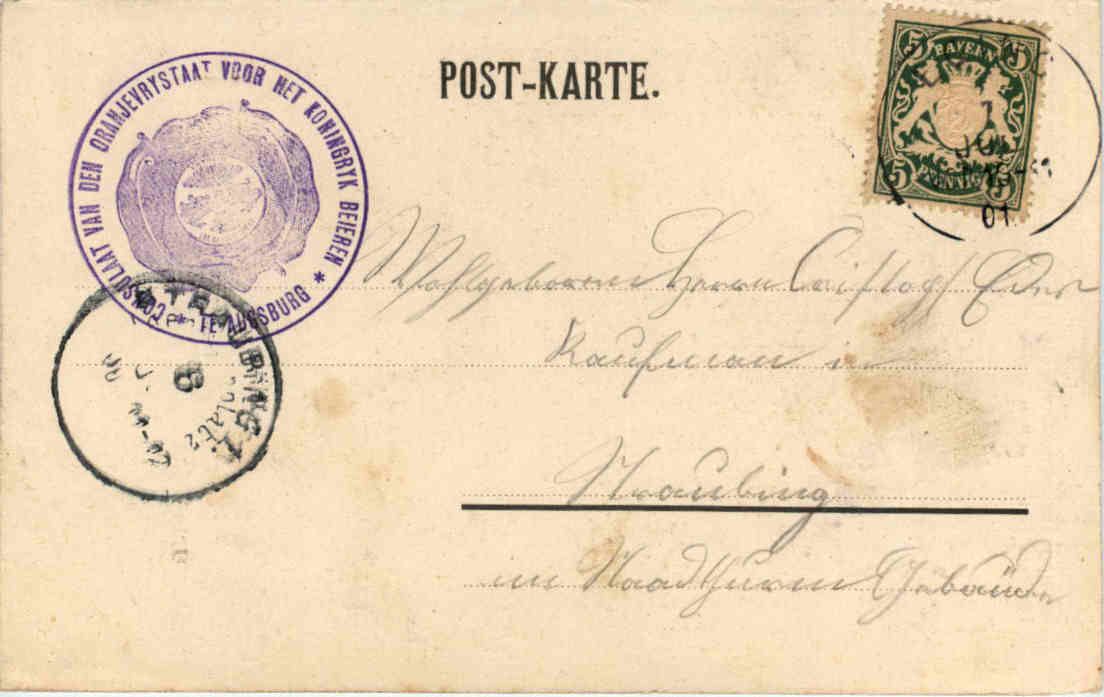 POST-KARTE.
CONSULAAT VAN DEN ORANJEVRYSTAAT VOOR HET KONINGRYK BEIEREN * TE AUGSBURG *
5 BAYERN 5
5 PFENNIG 5
7
JUL
01
STRAUBING 1.
8
Wohlgeboren Herrn
Kaufman in
Straubing
im Stadtthurm Gebäude